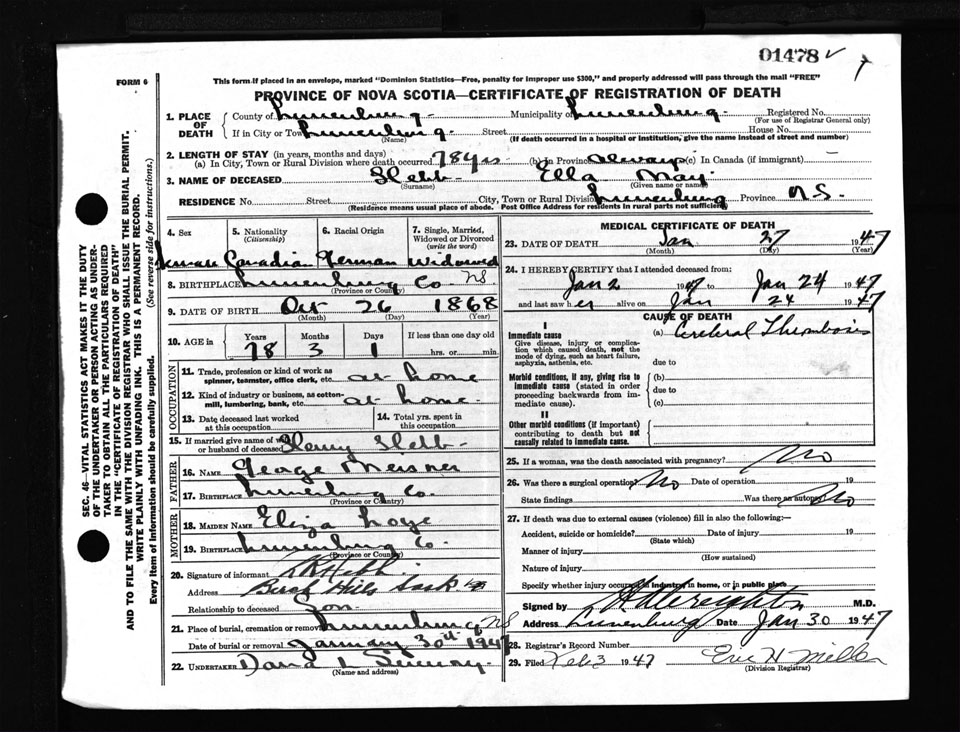 01478
FORM 6
This form if placed in an envelope, marked "Dominion Statistics—Free, penalty for improper use $300," and properly addressed will pass through the mail "FREE"
PROVINCE OF NOVA SCOTIA—CERTIFICATE OF REGISTRATION OF DEATH
1. PLACE OF DEATH
County of Lunenburg Municipality of Lunenburg Registered No.
(For use of Registrar General only)
If in City or Town Lunenburg Street House No.
(Name) (If death occurred in a hospital or institution, give the name instead of street and number)
2. LENGTH OF STAY (in years, months and days)
(a) In City, Town or Rural Division where death occurred 78 yrs (b) In Province always (c) In Canada (if immigrant) —
3. NAME OF DECEASED Hebb Ella May
(Surname) (Given name or names)
RESIDENCE No. Street City, Town or Rural Division Lunenburg Province N.S.
(Residence means usual place of abode. Post Office Address for residents in rural parts not sufficient)
4. Sex 5. Nationality (Citizenship) 6. Racial Origin 7. Single, Married, Widowed or Divorced (write the word)
Female Canadian German Widowed
8. BIRTHPLACE Lunenburg Co. NS
(Province or Country)
9. DATE OF BIRTH Oct 26 1868
(Month) (Day) (Year)
10. AGE in Years Months Days If less than one day old
78 3 1 hrs. or min.
OCCUPATION
11. Trade, profession or kind of work as spinner, teamster, office clerk, etc. at home
12. Kind of industry or business, as cotton-mill, lumbering, bank, etc. at home
13. Date deceased last worked at this occupation
14. Total yrs. spent in this occupation
15. If married give name of wife or husband of deceased Henry Hebb
FATHER
16. NAME George Meisner
17. BIRTHPLACE Lunenburg Co.
(Province or Country)
MOTHER
18. MAIDEN NAME Eliza Loye
19. BIRTHPLACE Lunenburg Co.
(Province or Country)
20. Signature of informant Hebb
Address Birch Hills Sask
Relationship to deceased Son
21. Place of burial, cremation or removal Lunenburg NS
Date of burial or removal January 30th 1947
22. UNDERTAKER
(Name and address)
MEDICAL CERTIFICATE OF DEATH
23. DATE OF DEATH Jan 27 1947
(Month) (Day) (Year)
24. I HEREBY CERTIFY that I attended deceased from:
Jan 2 1947 to Jan 24 1947
and last saw her alive on Jan 24 1947
CAUSE OF DEATH
I
Immediate cause (a) Cerebral Thrombosis
Give disease, injury or complication which caused death, not the mode of dying, such as heart failure, asphyxia, asthenia, etc.
due to
Morbid conditions, if any, giving rise to immediate cause (stated in order proceeding backwards from immediate cause).
(b)
due to
(c)
II
Other morbid conditions (if important) contributing to death but not causally related to immediate cause.
25. If a woman, was the death associated with pregnancy? No
26. Was there a surgical operation? No Date of operation 19
State findings Was there an autopsy? No
27. If death was due to external causes (violence) fill in also the following:—
Accident, suicide or homicide? Date of injury 19
(State which)
Manner of injury
(How sustained)
Nature of injury
Specify whether injury occurred in industry, in home, or in public place
Signed by Creighton M.D.
Address Lunenburg Date Jan 30 1947
28. Registrar's Record Number
29. Filed Feb 3 1947 Eric H Miller
(Division Registrar)
SEC. 46—VITAL STATISTICS ACT MAKES IT THE DUTY
OF THE UNDERTAKER OR PERSON ACTING AS UNDER-
TAKER TO OBTAIN ALL THE PARTICULARS REQUIRED
IN THE "CERTIFICATE OF REGISTRATION OF DEATH"
AND TO FILE THE SAME WITH THE DIVISION REGISTRAR WHO SHALL ISSUE THE BURIAL PERMIT.
WRITE PLAINLY WITH UNFADING INK. THIS IS A PERMANENT RECORD.
Every item of information should be carefully supplied. (See reverse side for instructions.)